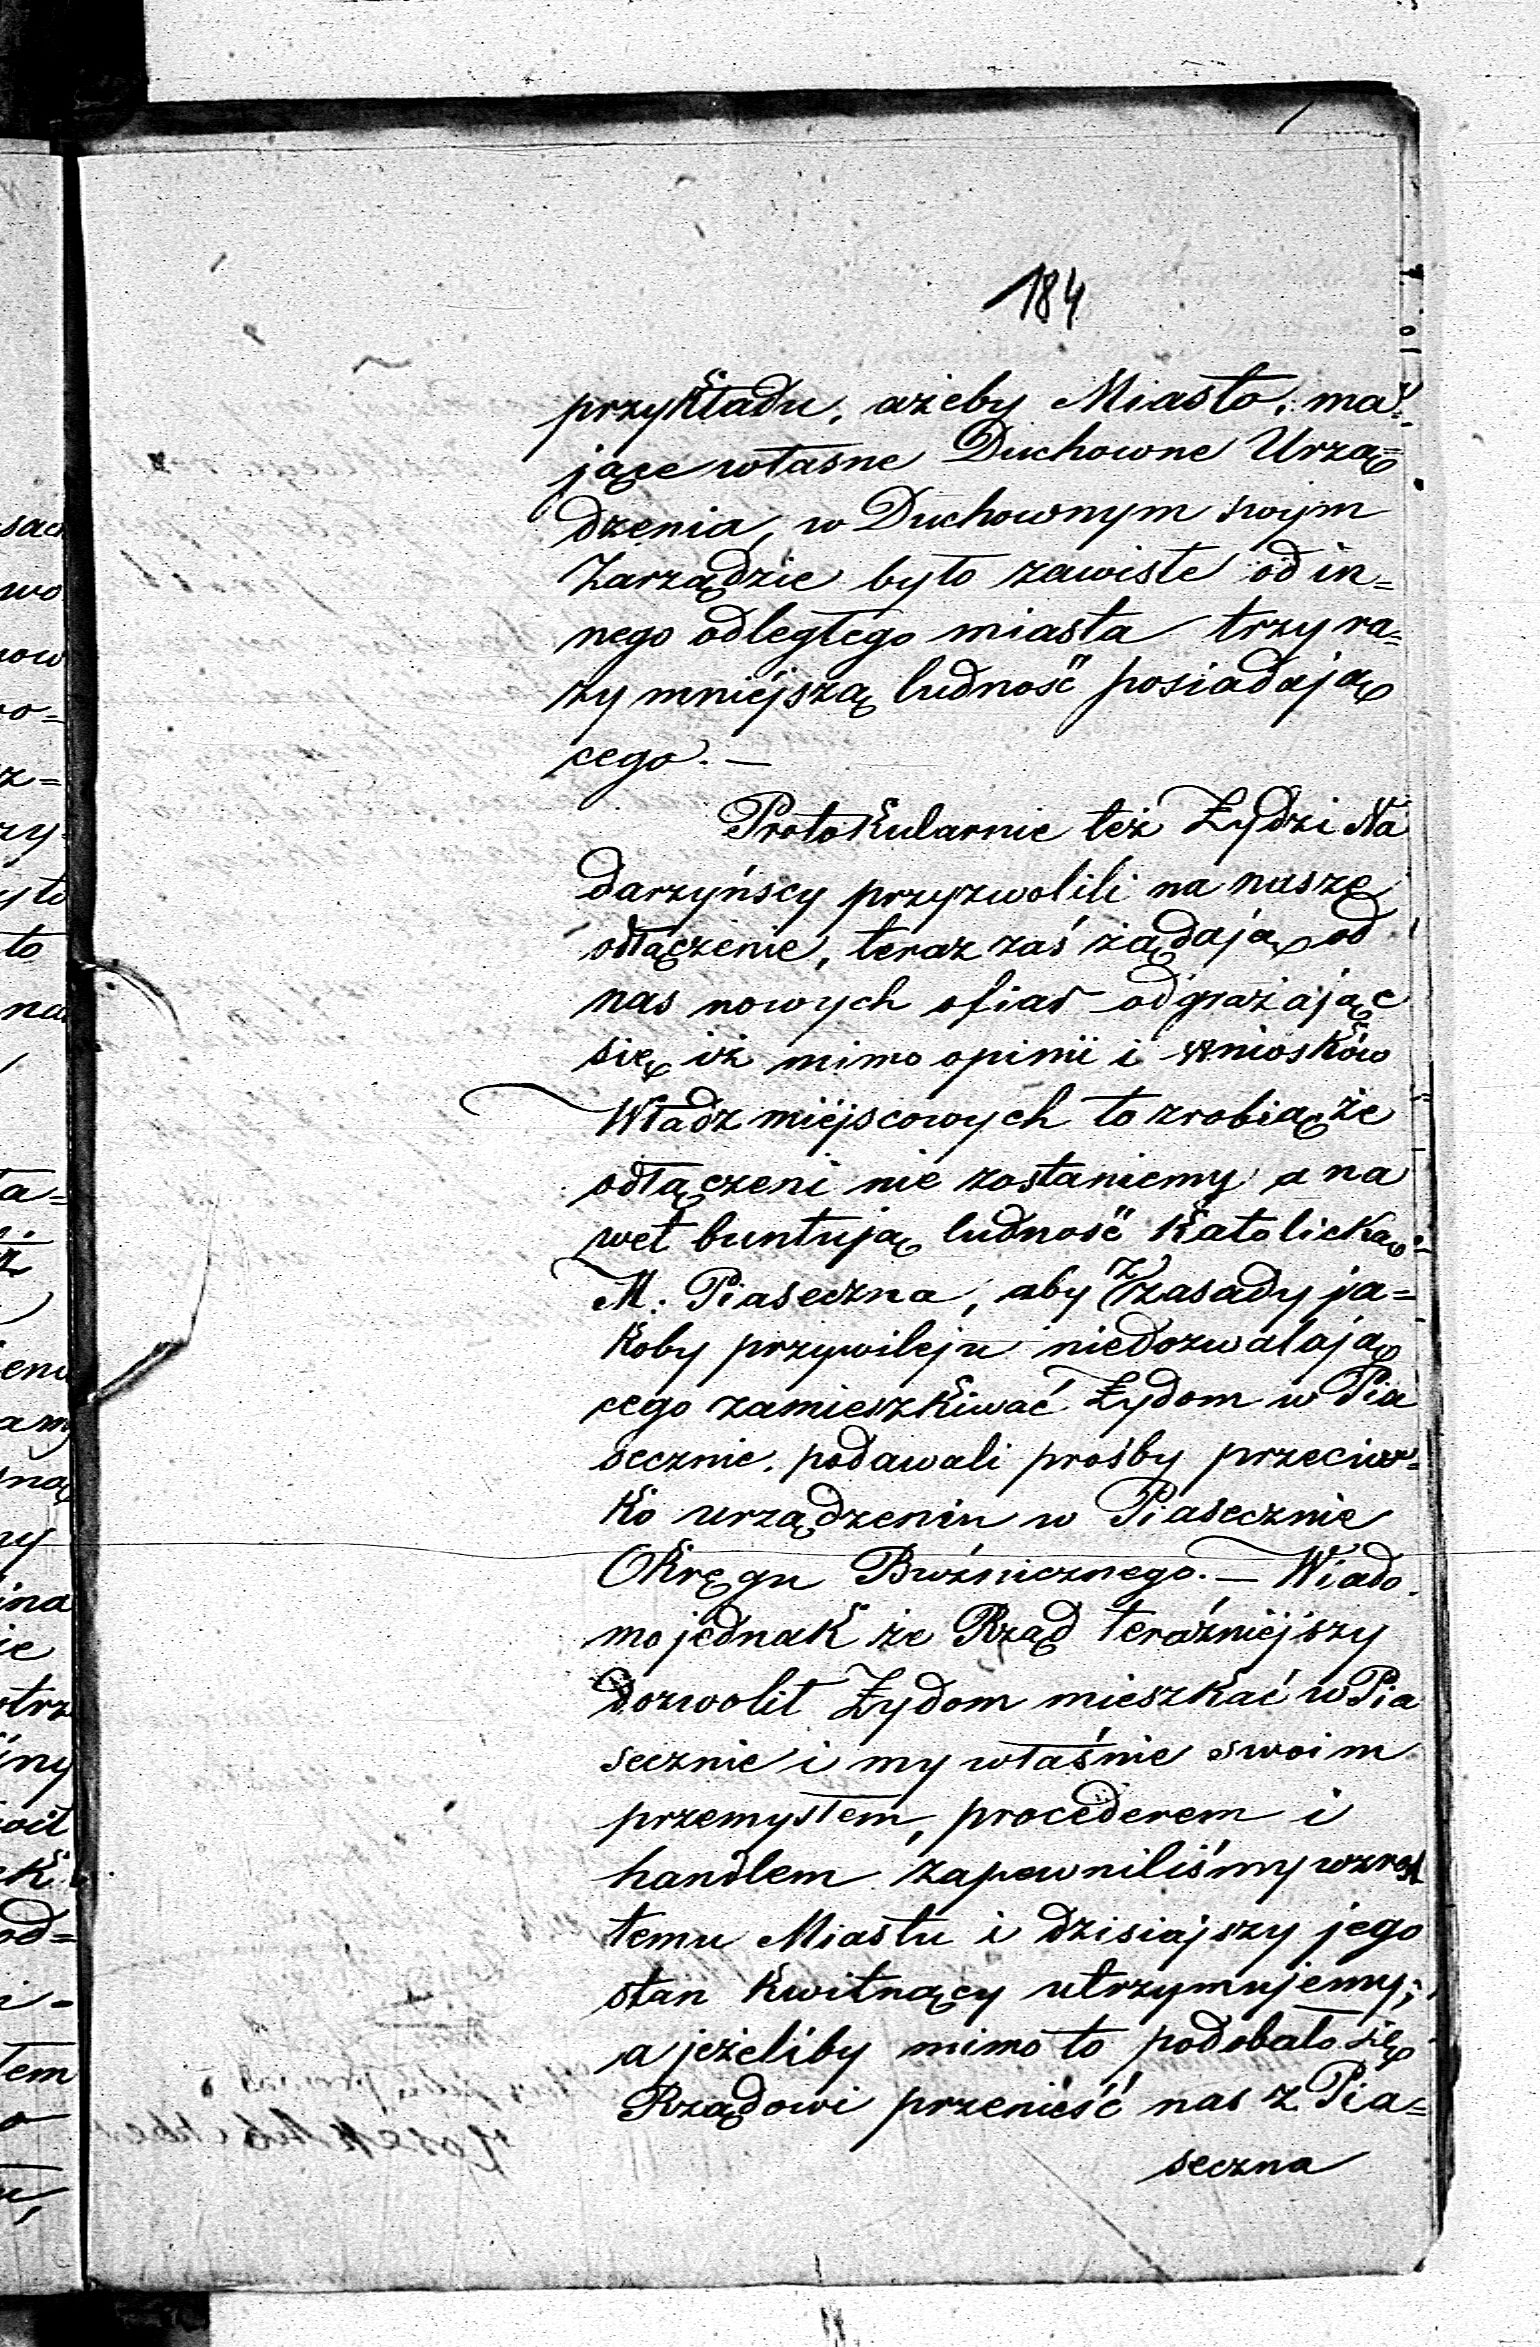 184
przykładu, ażeby Miasto, ma=
jące własne Duchowne Urzą=
dzenia, w Duchownym swym
Zarządzie było zawisłe od in=
nego odległego miasta trzy ra=
zy mniejszą ludność posiadają
cego. —
Protokularnie też Żydzi Na
darzyńscy przyzwolili na nasze
odłączenie, teraz zaś żądają od
nas nowych ofiar odgrażając
się iż mimo opinii i wniosków
Władz miejscowych to zrobią że
odłączeni nie zostaniemy a na
wet buntują ludność Katolicką
M. Piaseczna, aby z zasady ja=
koby przywileju niedozwalają
cego zamieszkiwać Żydom w Pia
secznie, podawali prośby przeciw=
ko urządzeniu w Piasecznie
Okręgu Bóźnicznego. — Wiado
mo jednak że Rząd teraźniejszy
dozwolił Żydom mieszkać w Pia
secznie i my właśnie swoim
przemysłem, procederem i
handlem zapewniliśmy wzrost
temu Miastu i dzisiajszy jego
stan kwitnący utrzymujemy;
a jeżeliby mimo to podobało się
Rządowi przenieść nas z Pia=
seczna